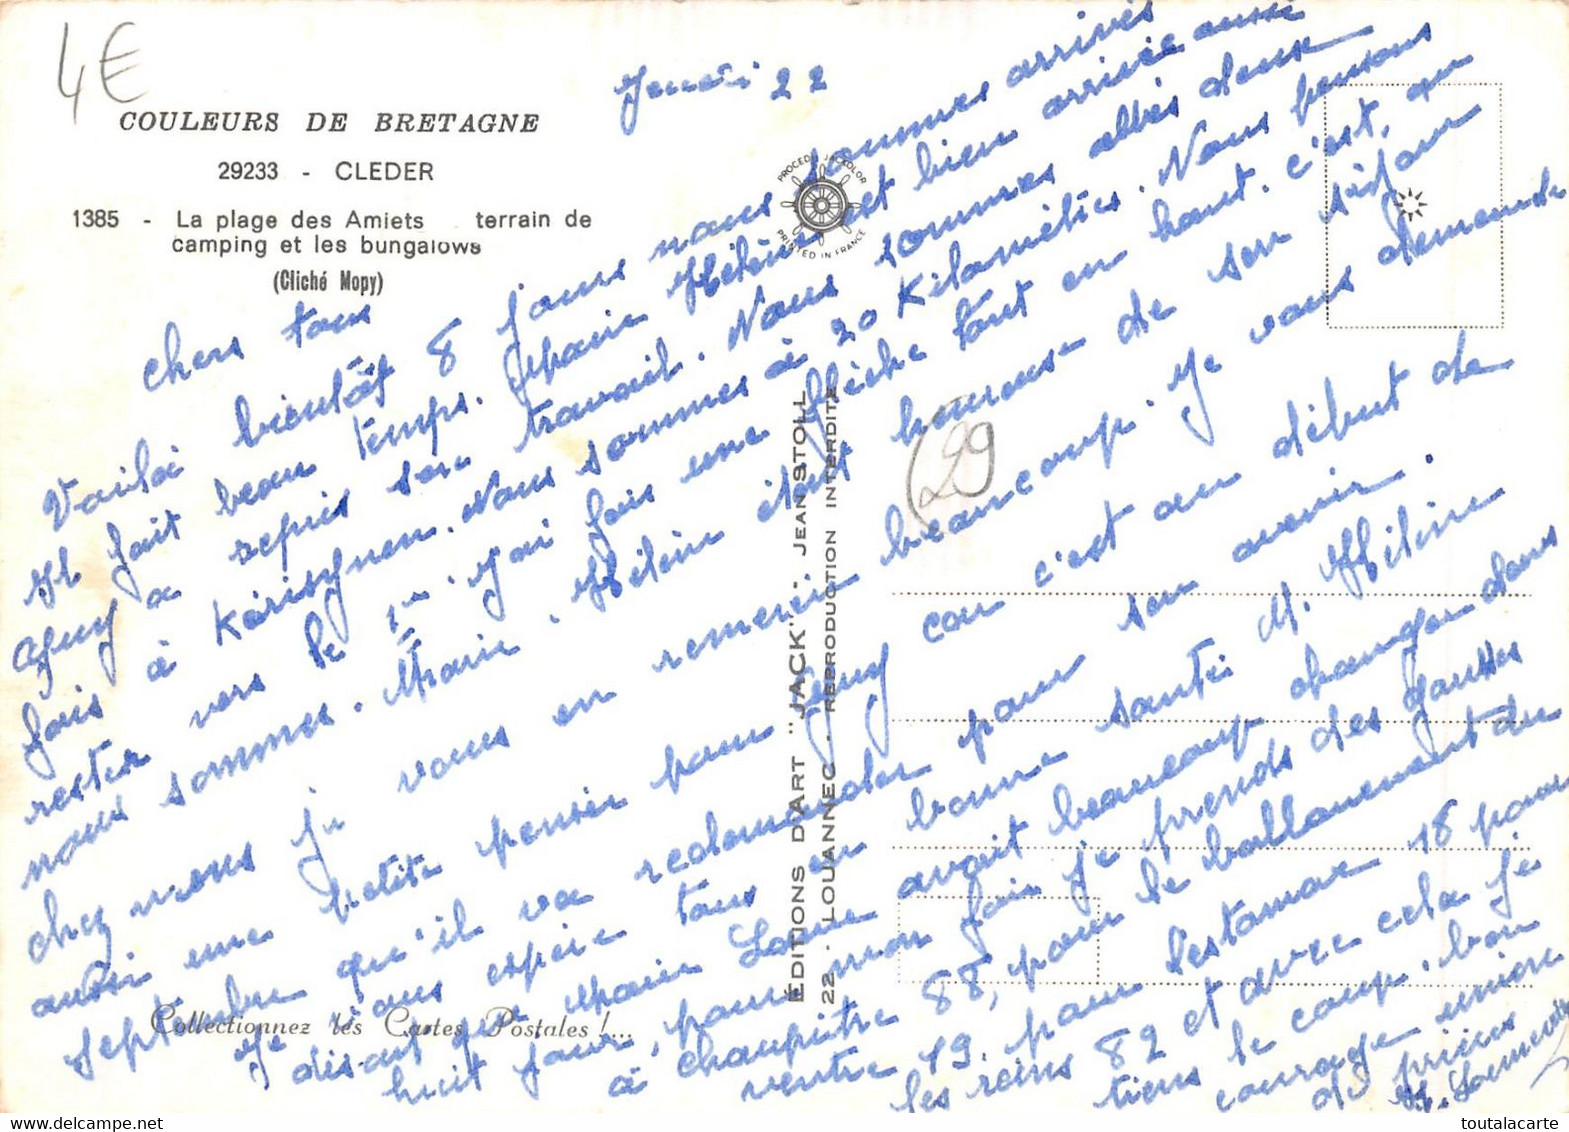 4€
COULEURS DE BRETAGNE
29233 - CLEDER
1385 - La plage des Amiets terrain de
camping et les bungalows
(Cliché Mopy)
22
PROCEDE JACKOLOR
PRINTED IN FRANCE
chers tous
Voilà bientôt 8 jours nous sommes arrivés
il fait beau temps. Marie Hélène est bien arrivée aussi
depuis son travail. Nous sommes allés deux
fois à Kérisnen. Nous sommes à 20 Kilomètres. Nous pensons
rester vers le J'ai fais une flèche tout en haut. c'est où
nous sommes. Marie. Hélène étant heureuse de son séjour
chez nous je vous en remercie beaucoup. Je vous demande
aussi une petite pensée pour car c'est au début de
septembre qu'il va redemander pour son avenir.
J'ous espère tous en bonne santé. M. Hélène
disant que Marie Lou avait beaucoup changer dans
huit jour, pour mon foie je prends des gouttes
à chaupitre 88, pour le ballonement du
ventre 19. pour l'estomac 18 pour
les reins 82 et avec cela je
tiens le coup. bon
courage union
de prières
ÉDITIONS D'ART "JACK" - JEAN STOLL
22 - LOUANNEC - REPRODUCTION INTERDITE
(29
Collectionnez les Cartes Postales !...
www.toutalacarte.com